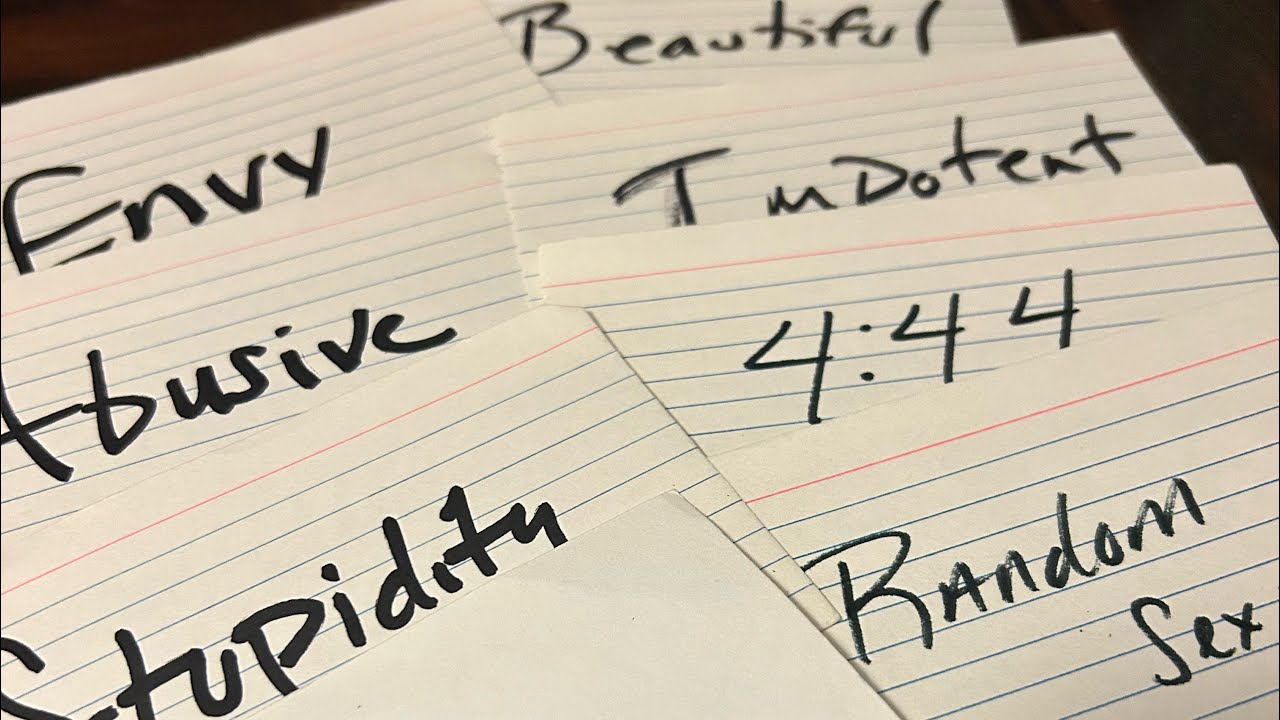 Beautiful
Envy
Impotent
Abusive
4:44
Stupidity
Random
Sex